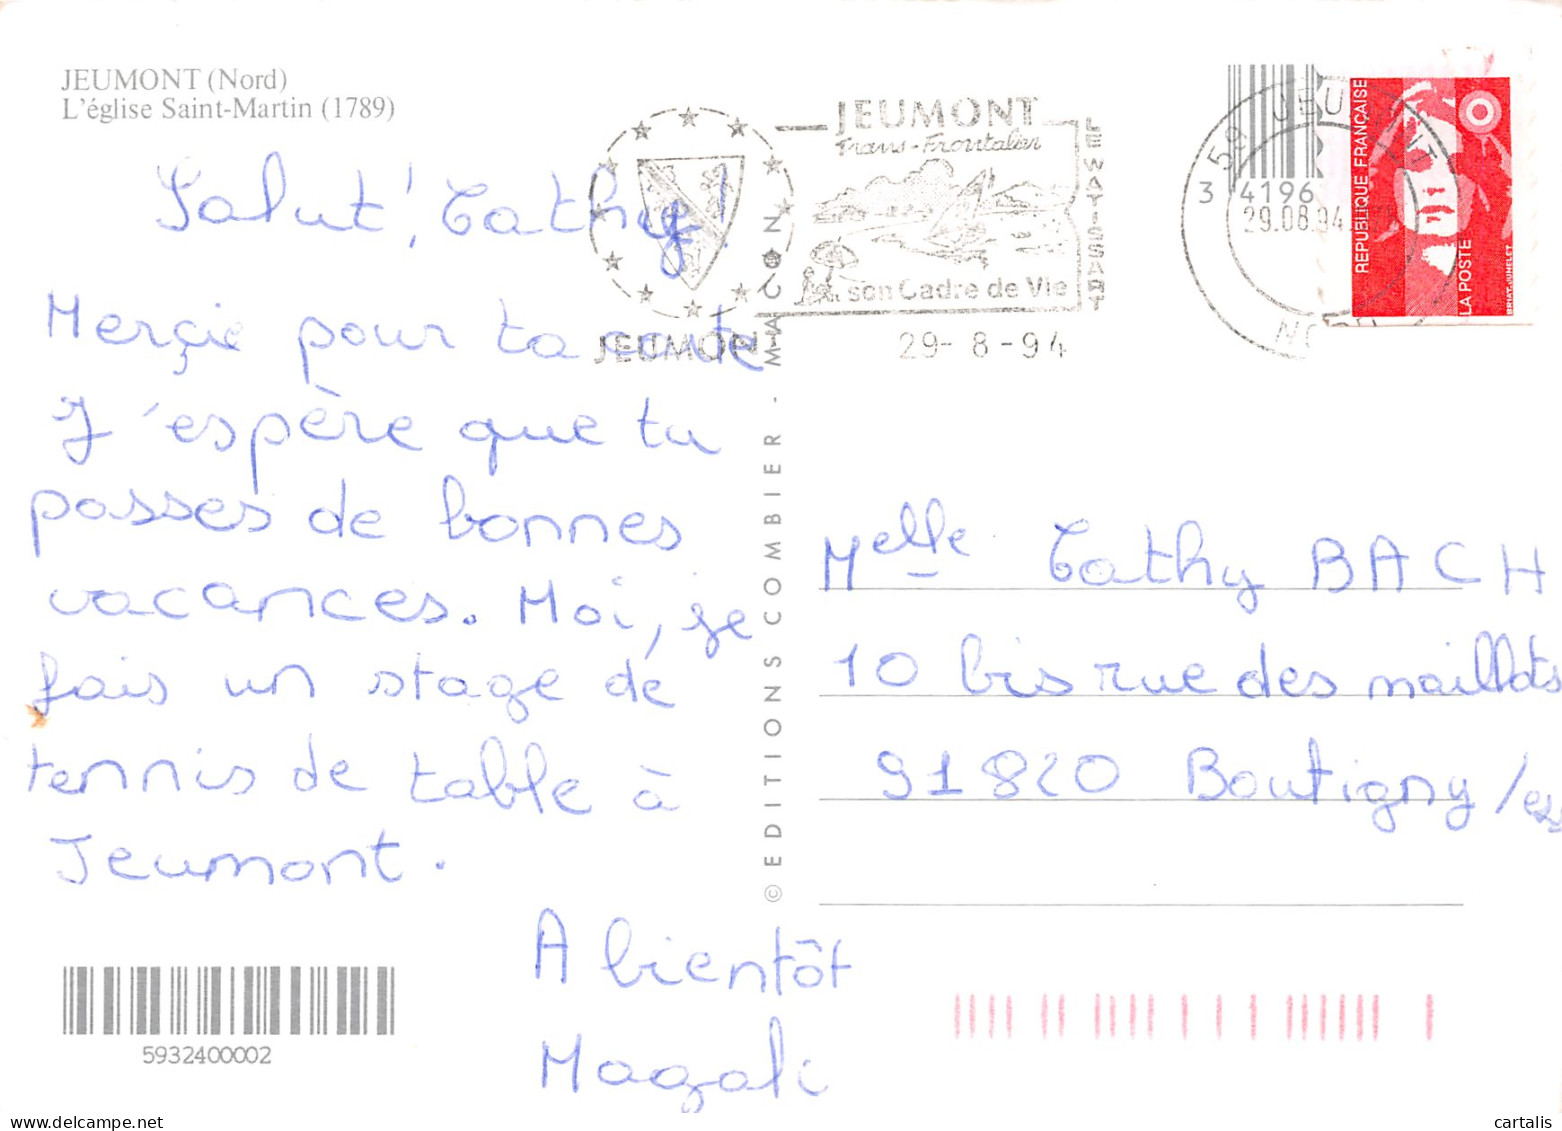 JEUMONT (Nord)
L'église Saint-Martin (1789)
Salut ! Cathy !
Merçie pour ta carte
J'espère que tu
passes de bonnes
vacances. Moi, je
fais un stage de
tennis de table à
Jeumont.
A bientôt
Magali
5932400002
© EDITIONS COMBIER - MACON
JEUMONT
Trans-Frontalier
LE WATISSART
son Cadre de Vie
JEUMONT
29-8-94
59 JEUMONT
3 4196
29.08.94
NORD
REPUBLIQUE FRANÇAISE
LA POSTE
BRIAT-JUMELET
Melle Cathy BACH
10 bis rue des maillots
91820 Boutigny/ess
delcampe.net
cartalis